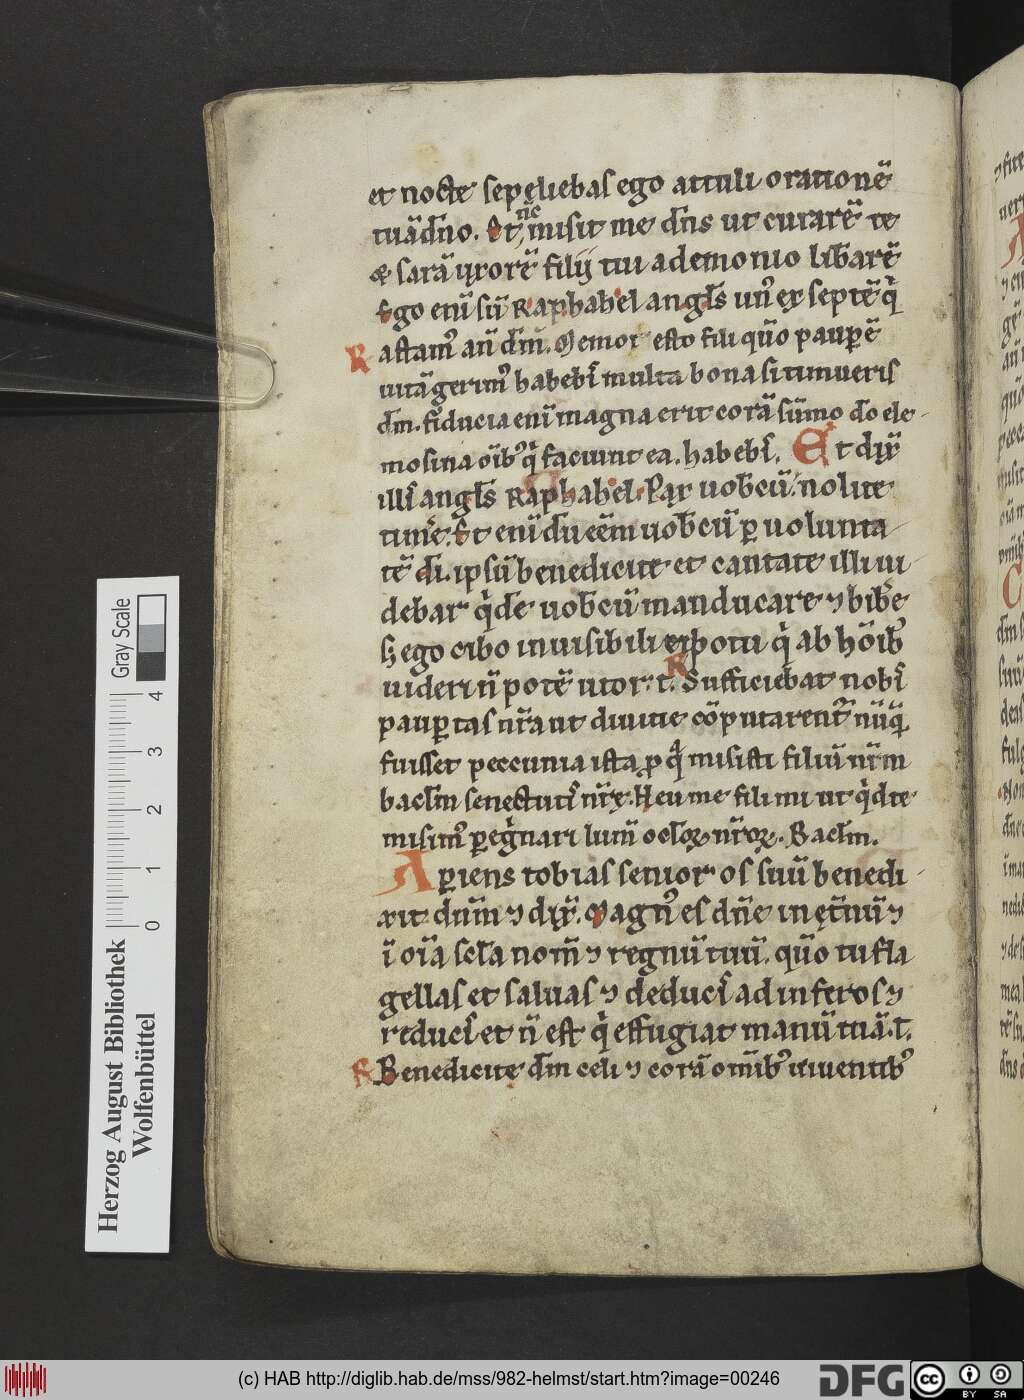 et nocte sepeliebas ego attuli orationē
tuā dn̄o. Et nc̄ misit me dn̄s ut curarē te
& sarā uxorē filij tui a demonio lib̄arē
Ego eni̅ sū Raphahel angls̄ un᷒ ex septē qⁱ
R astam᷒ an̄ dm̄. Memor esto fili quō pauꝑē
uitā gerim᷒ habebi᷒ multa bona si timueris
dm̄. fiducia eni̅ magna erit corā sūmo dō ele
mosina oīb᷒ qⁱ faciunt ea. habebi᷒. Et dix̄
illi᷒ angls̄ Raphahel. Pax uob̄cū. nolite
tim̄e. Et eni̅ dū eēm uob̄cū ꝑ uolunta
tē dī. ipsū benedicite et cantate illi ui
debar qⁱdē uob̄cū manducare ⁊ bib̄e
s; ego cibo inuisibili et potu qⁱ ab hōīb᷒
uideri n̄ potē utor. t̄. R Sufficiebat nobi᷒
pauꝑtas nr̄a ut diuitie cōputarent᷒ nūq̄
fuisset peccunia ista ꝓ qᵃ misisti filiū nr̄m
bacl̄m senectuti᷒ nr̄x. Heu me fili mi ut qⁱd te
misim᷒ ꝑegⁱnari lum̄ ocl̄oꝝ nr̄oꝝ. Bacl̄m.
Aꝑiens tobias senior os suū benedi
xit dn̄m ⁊ dix̄. Magn᷒ es dn̄e in et̄nū ⁊
ī oīa sc̄la nom̄ ⁊ regnū tuū. quō tu fla
gellas et saluas ⁊ deduci᷒ ad inferos ⁊
reduci᷒ et n̄ est qⁱ effugiat manū tuā. t̄.
R Benedicite dm̄ celi ⁊ corā om̄ib᷒ uiuentib᷒
Herzog August Bibliothek
Wolfenbüttel
0 1 2 3 4
Gray Scale
(c) HAB http://diglib.hab.de/mss/982-helmst/start.htm?image=00246
DFG
cc BY SA